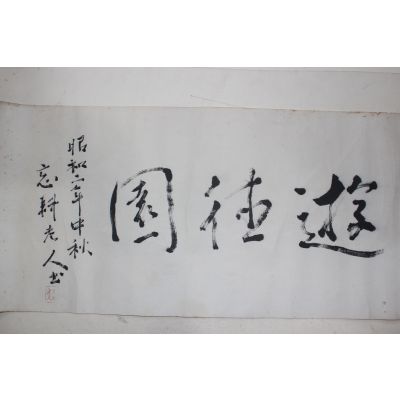 遊徳園
昭和六年中秋
忘耕老人書